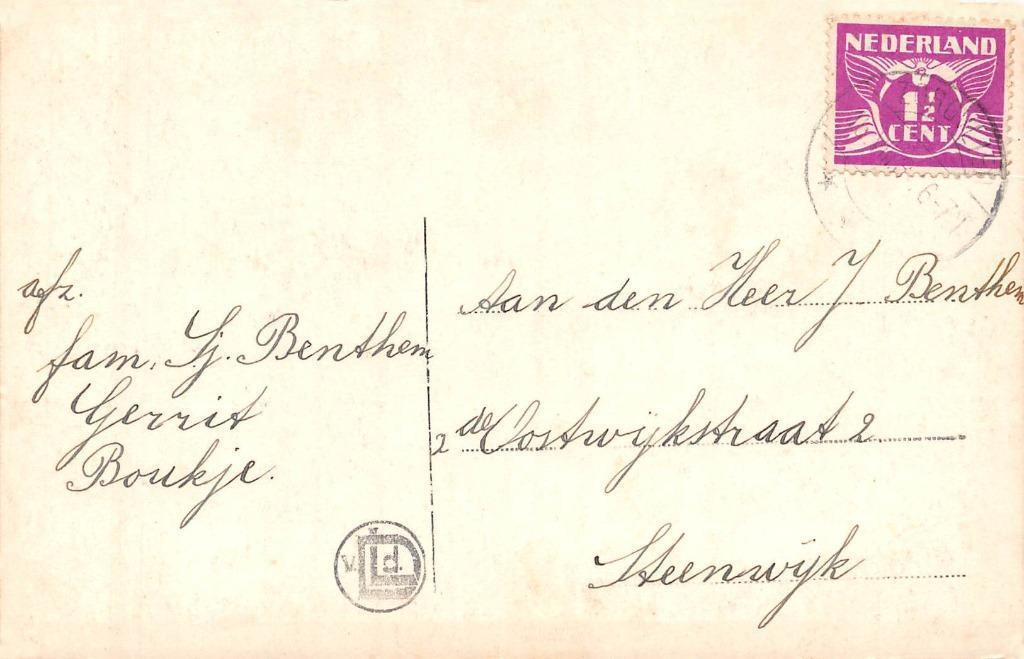 NEDERLAND
1½
CENT
6-7N
afz.
fam. Sj. Benthem
Gerrit
Boukje.
Aan den Heer J Benthem
2de Oostwijkstraat 2
Steenwijk